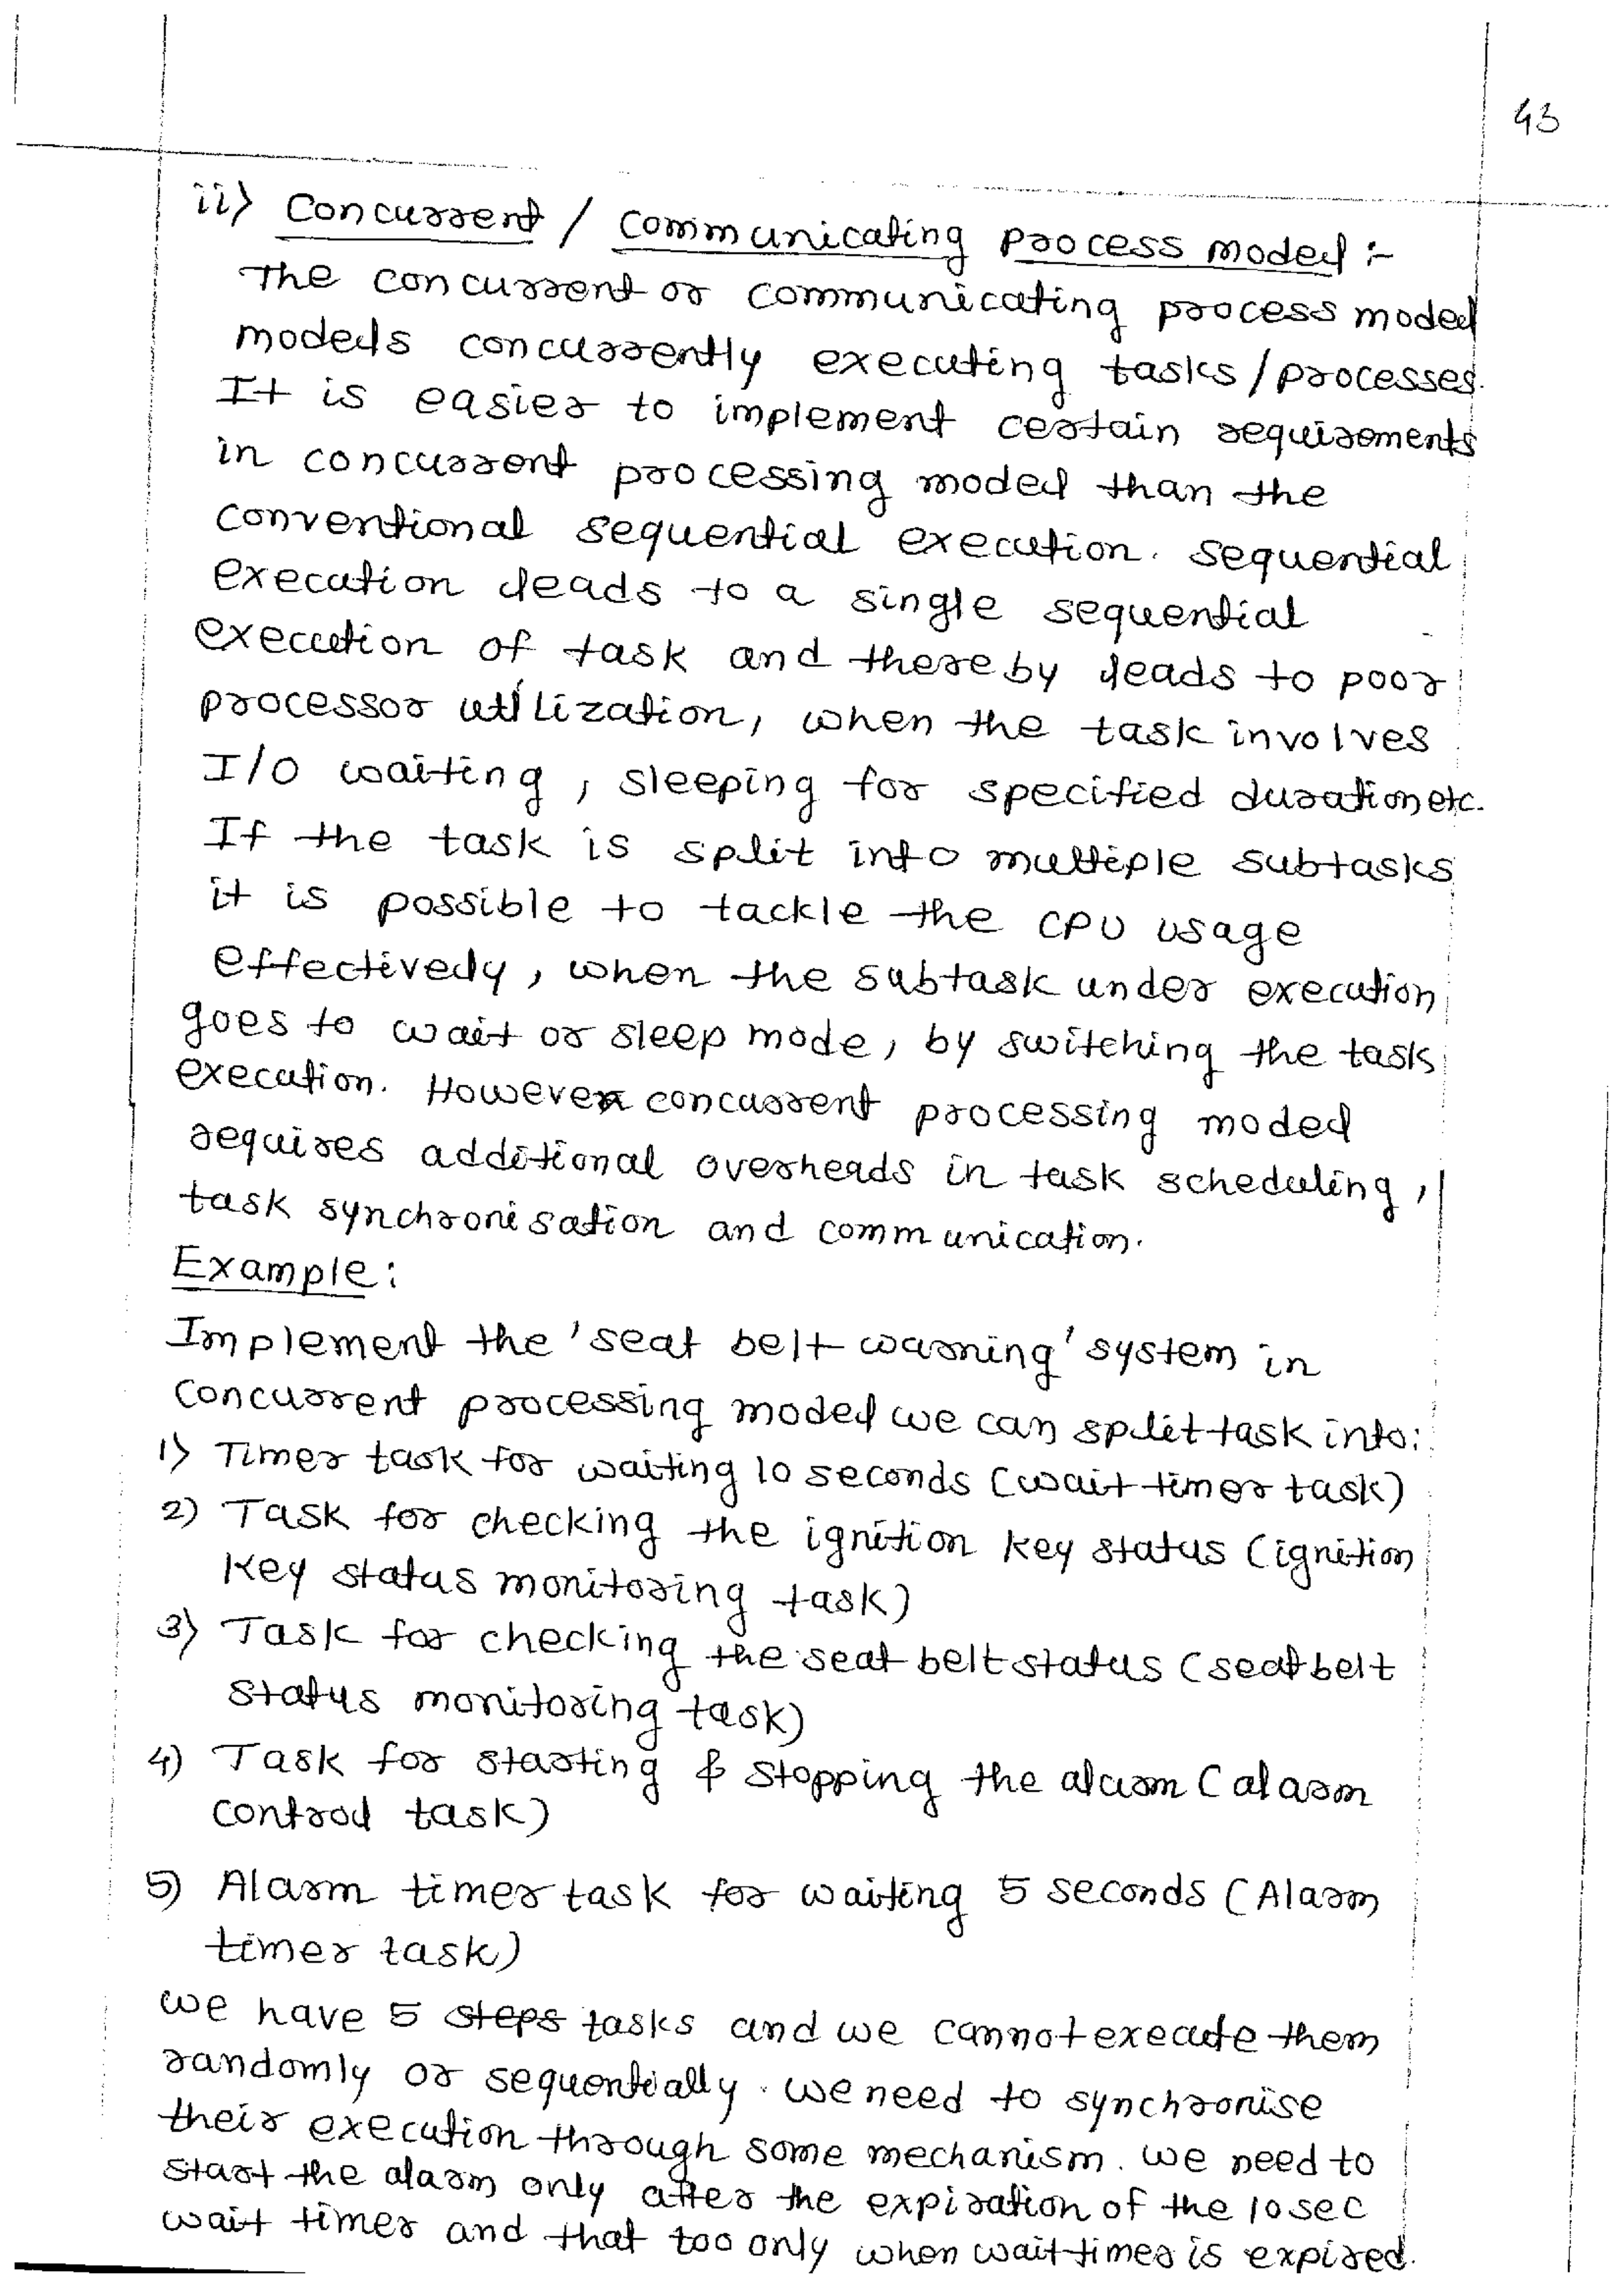 43
ii) Concurrent / Communicating process model :-
The concurrent or communicating process model
models concurrently executing tasks/processes.
It is easier to implement certain requirements
in concurrent processing model than the
conventional sequential execution. Sequential
execution leads to a single sequential
execution of task and thereby leads to poor
processor utilization, when the task involves
I/O waiting, sleeping for specified duration etc.
If the task is split into multiple subtasks
it is possible to tackle the CPU usage
effectively, when the subtask under execution
goes to wait or sleep mode, by switching the task
execution. However concurrent processing model
requires additional overheads in task scheduling,
task synchronisation and communication.
Example:
Implement the 'seat belt warning' system in
concurrent processing model we can split task into:
1) Timer task for waiting 10 seconds (wait timer task)
2) Task for checking the ignition key status (ignition
key status monitoring task)
3) Task for checking the seat belt status (seat belt
status monitoring task)
4) Task for starting & stopping the alarm (alarm
control task)
5) Alarm timer task for waiting 5 seconds (Alarm
timer task)
we have 5 steps tasks and we cannot execute them
randomly or sequentially. we need to synchronise
their execution through some mechanism. we need to
start the alarm only after the expiration of the 10 sec
wait timer and that too only when wait timer is expired.